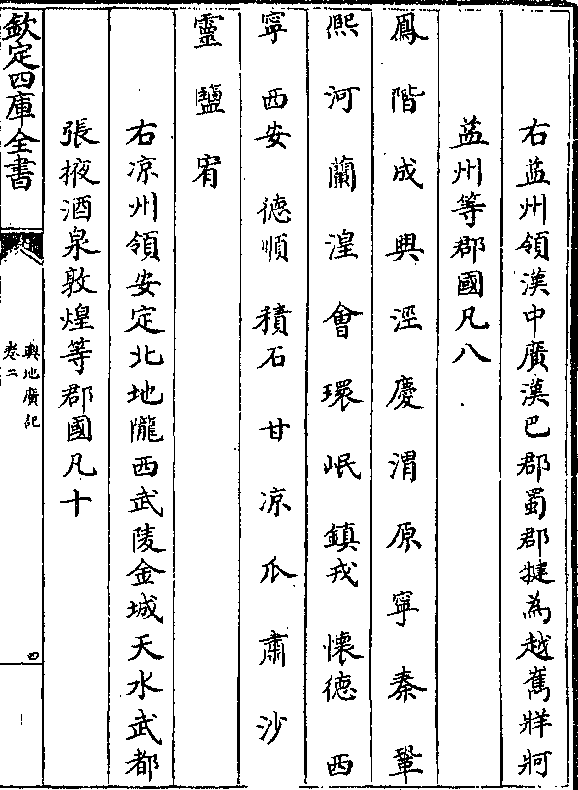 右益州領漢中廣漢巴郡蜀郡揵為越嶲牂牁
益州等郡國凡八
鳳階成興涇慶渭原寧秦鞏
熙河蘭湟會環岷鎮戎懷德西
寧西安德順積石甘凉瓜肅沙
靈鹽宥
右凉州領安定北地隴西武陵金城天水武都
張掖酒泉敦煌等郡國凡十
欽定四庫全書
輿地廣記
卷二
四